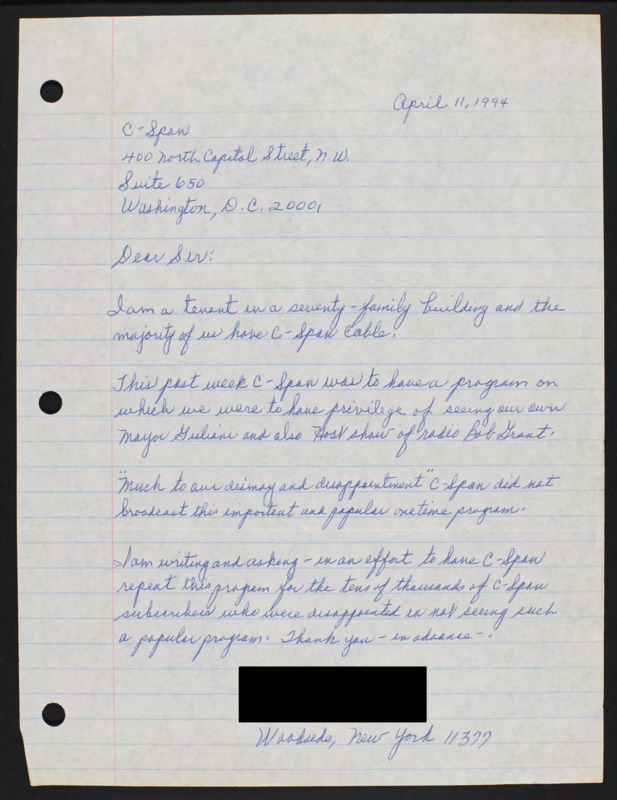 April 11, 1994
C-Span
400 North Capital Street, N.W.
Suite 650
Washington, D.C. 20001
Dear Sir:
I am a tenant in a seventy-family building and the
majority of us have C-Span Cable.
This past week C-Span was to have a program on
which we were to have privilege of seeing our own
Mayor Guliani and also Host show of radio Bob Grant.
"Much to our dismay and disappointment" C-Span did not
broadcast this important and popular onetime program.
I am writing and asking - in an effort to have C-Span
repeat this program for the tens of thousands of C-Span
subscribers who were disappointed in not seeing such
a popular program. Thank you - in advance -.
Woodside, New York 11377